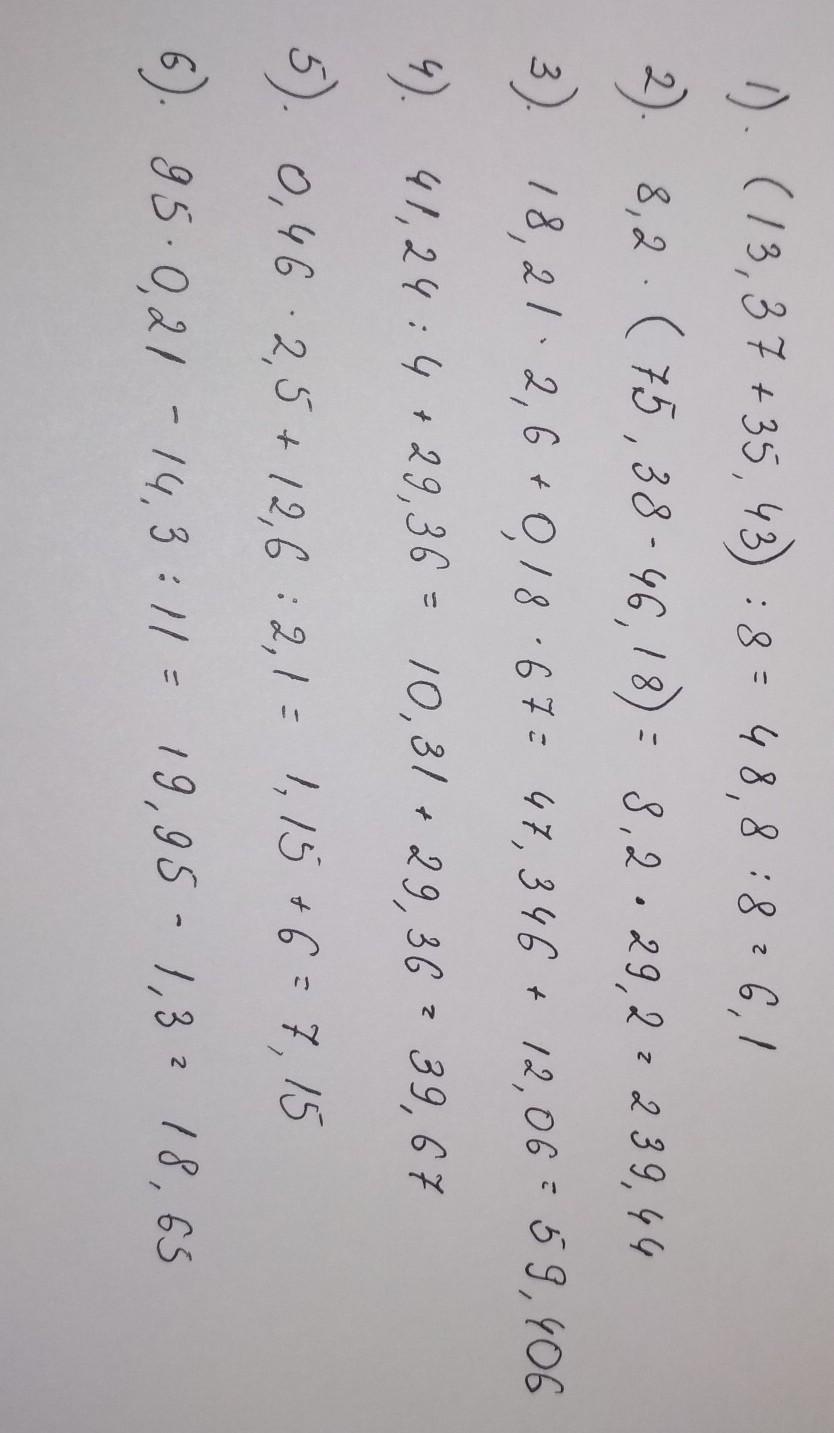 1). (13,37+35,43) :8 = 48,8 :8 = 6,1
2). 8,2 · (75,38-46,18) = 8,2 · 29,2 = 239,44
3). 18,21 · 2,6 + 0,18 · 67 = 47,346 + 12,06 = 59,406
4). 41,24 : 4 + 29,36 = 10,31 + 29,36 = 39,67
5). 0,46 · 2,5 + 12,6 : 2,1 = 1,15 + 6 = 7,15
6). 95 · 0,21 - 14,3 : 11 = 19,95 - 1,3 = 18,65